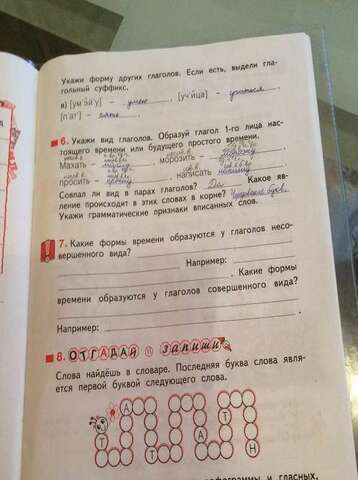 Укажи форму других глаголов. Если есть, выдели гла-
гольный суффикс.
в) [ум'э́йу] – умею, [уч'и́ца] – учиться,
[п'ат'] –
6. Укажи вид глаголов. Образуй глагол 1-го лица нас-
тоящего времени или будущего простого времени.
Махать – , морозить –
просить – прошу, написать напишу.
Совпал ли вид в парах глаголов? Да Какое яв-
ление происходит в этих словах в корне? Чередование букв.
Укажи грамматические признаки вписанных слов.
7. Какие формы времени образуются у глаголов несо-
вершенного вида?
Например:
. Какие формы
времени образуются у глаголов совершенного вида?
Например:
8. ОТГАДАЙ И ЗАПИШИ
Слова найдёшь в словаре. Последняя буква слова явля-
ется первой буквой следующего слова.
А Т
Т Т А Н
орфограммы и гласных,